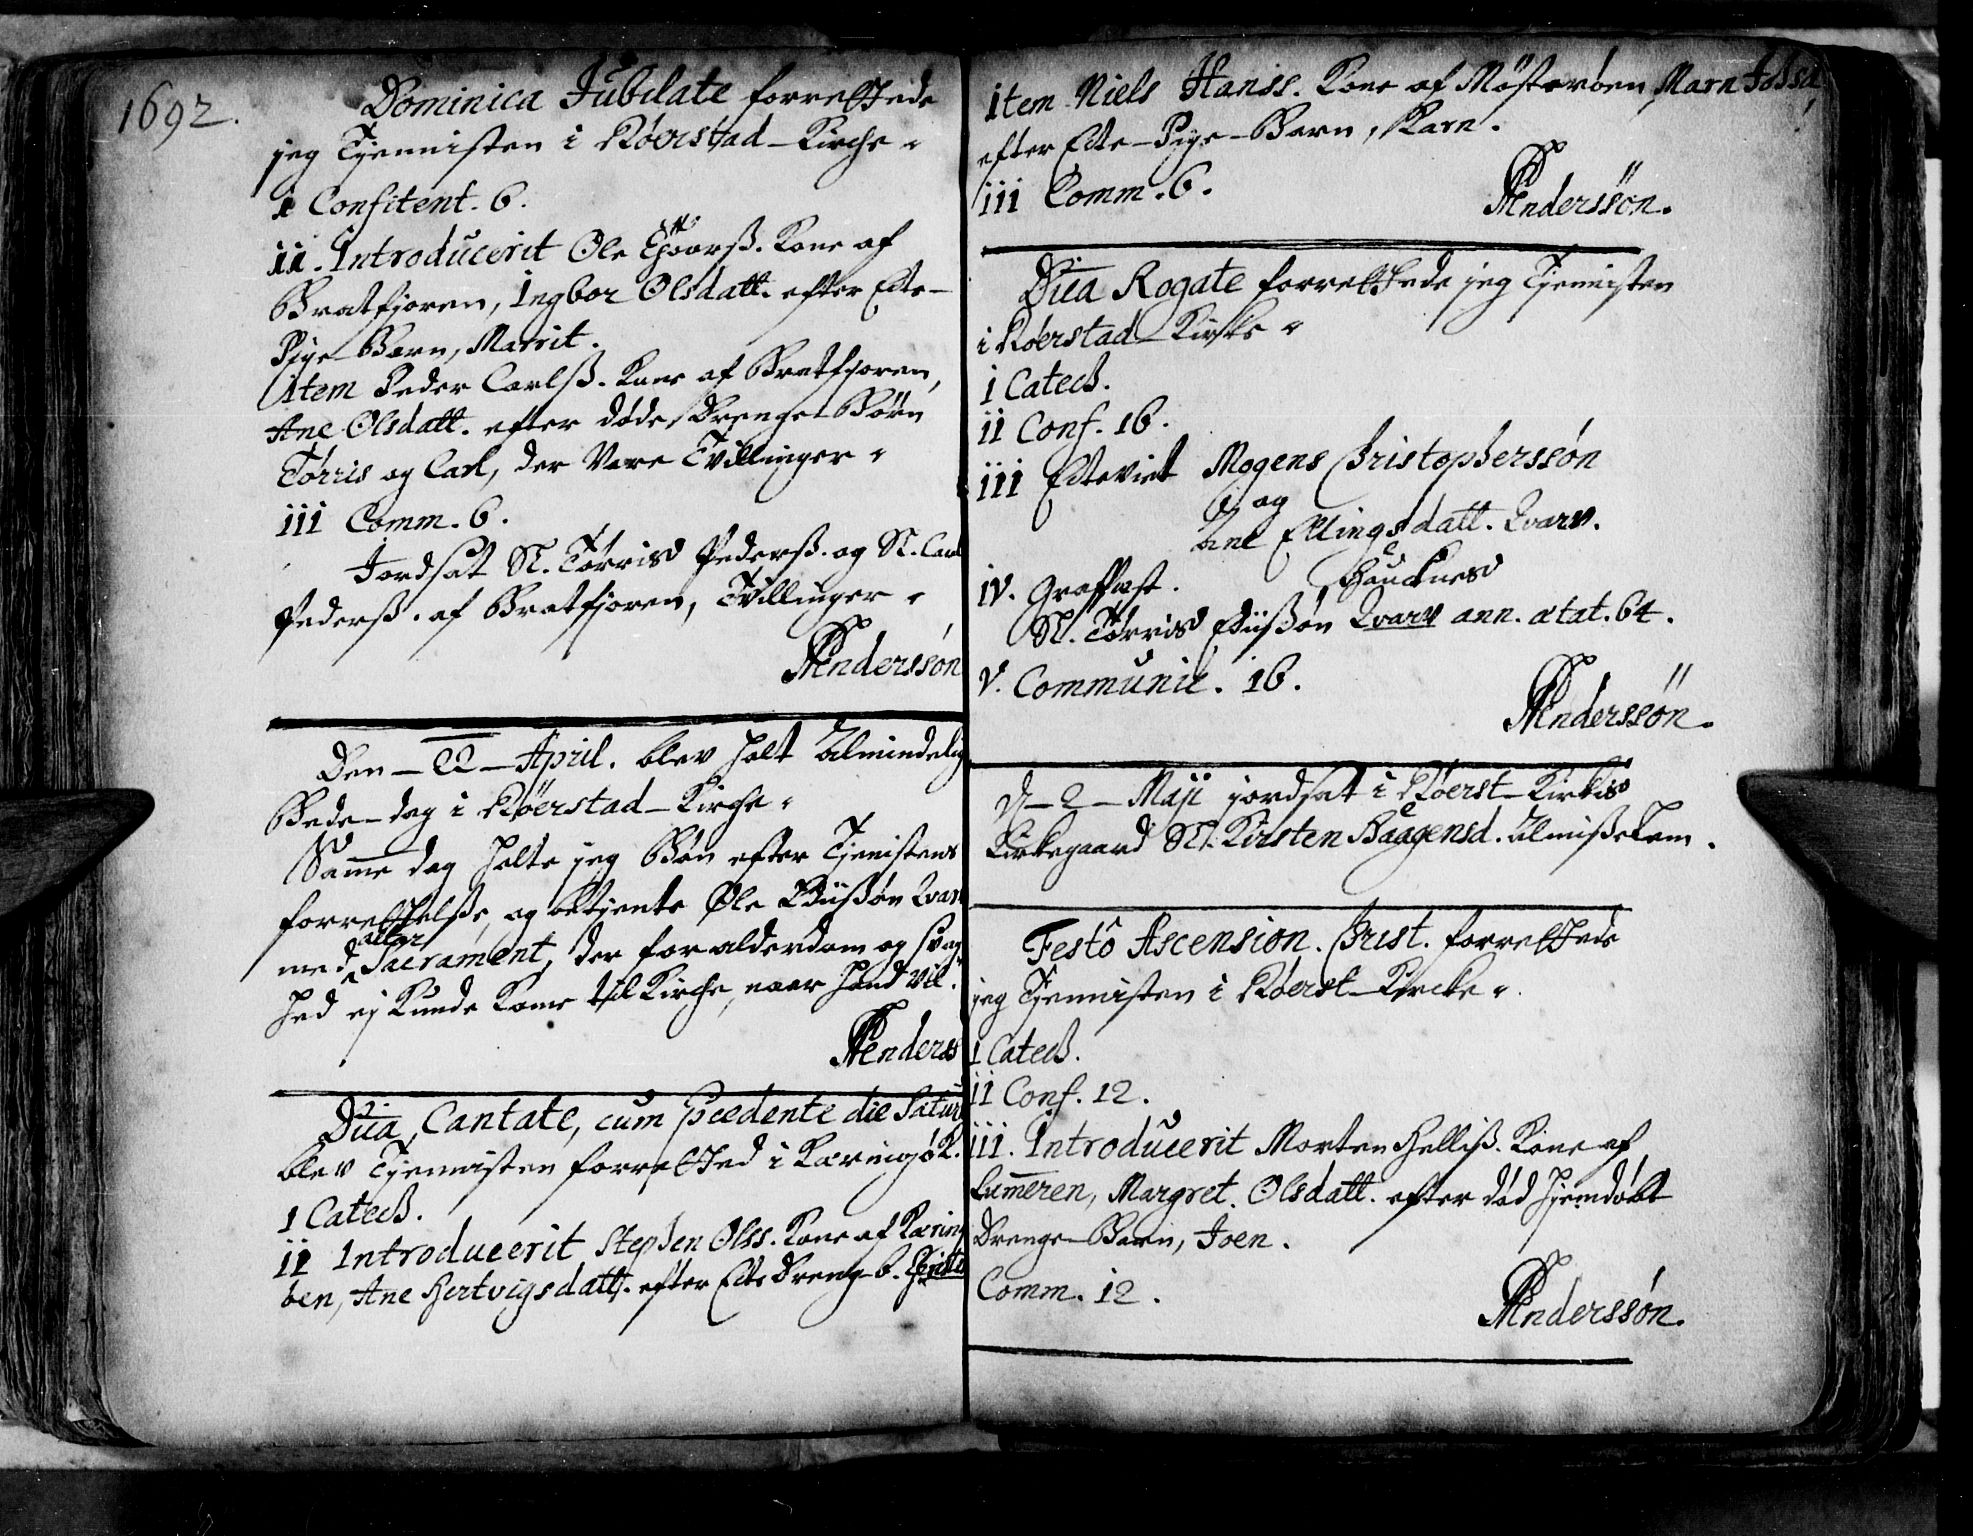 1692.
Dominica Jubilate forrettede
jeg Tjennisten i Røerstad-Kirche.
i Confitent. 6.
ii. Introducerit Ole Kone af
Bratfjoren, Ingbor Olsdatt. efter Ecte-
Pige-Barn, Marrit.
Item Peder Carlsß. Kone af Bratfjoren,
Ane Olsdatt. efter døde Drenge-Børn
Tørris og Carl, der Vare Tvillinger.
iii Comm. 6.
Jordsat Sl. Tørris Pedersß. og Sl. Carl
Pedersß. af Bratfjoren, Tvillinger.
Anderssön
Den - 22 - April. blev holt Almindelig
Bede-dag i Røerstad-Kirche.
Samme dag holte jeg Bøn efter Tjenistens
forrettelße, og betjente Ole Qvarv
med altar Sacrament, der for alderdom og svag-
hed ej Kunde Kome til Kirche, naar hand vil.
Anderss
Dnca Cantate, cum præcedente die Satur
blev Tjennisten forretted i Kæringø K.
i Catech.
ii Introducerit Stephen Olss. Kone af Kæring
öen, Ane Hertvigsdatt. efter Ecte Dreng-b.
item Niels Hanss. Kone af Mösterøen, Marn
efter Ecte-Pige-Barn, Karn.
iii Comm. 6.
Anderssön.
Dnca Rogate forrettede jeg Tjennisten
i Røerstad Kirke
i Catech.
ii Conf. 16.
iii Ecteviet Mogens Christopherssön
og
Ane Ellingsdatt. Qvarv.
iv. Graffæst.
Sl. Tørris Qvarv ann. ætat. 64.
v. Communic. 16.
Anderssön.
D - 2 - Maji jordsat i Røerst-Kirkis
Kirkegaard Sl. Kirsten Haagensd. Almißelem.
Festô Ascension. Christ. forrettede
jeg Tjennisten i Røerst-Kircke.
i Catech.
ii Conf. 12.
iii. Introducerit Morten Kone af
Lumeren, Margret Olsdatt. efter død hjemdøbt
Drenge-Barn, Joen.
Comm. 12.
Anderssön.